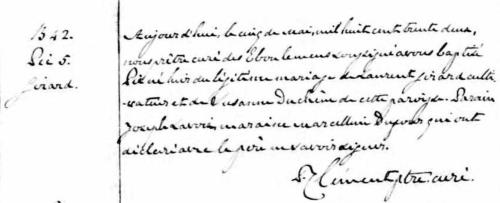 B42.
Pié S.
Girard.
Aujourd'hui, le cinq de Mai, mil huit cent trente deux,
nous prêtre curé des Eboulemens soussigné avons baptisé
Pié né hier du légitime mariage de Laurent Girard culti-
vateur et de Susanne Duchêne de cette paroisse. Parain
Joseph Savoie, maraine Marcelline Dufour qui ont
déclaré avec le père ne savoir signer.
Clément ptre. curé.